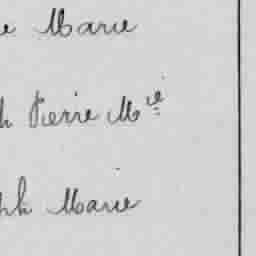 e Marie
h Pierre Mie
ph Marie